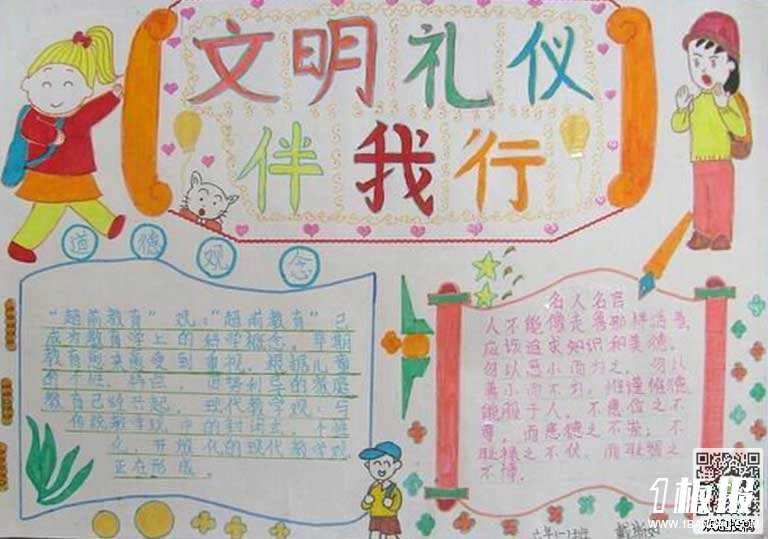 文明礼仪
伴我行
道德观念
"超前教育"观："超前教育"已
成为教育学上的科学概念，早期
教育愈来愈受到重视，根据儿童
教育已经兴起，现代教学观：与
传统教学观中的封闭式、个
化、开放化的现代教学观
正在形成。
名人名言
人不能像走兽那样活着，
应该追求知识和美德。
勿以恶小而为之，勿以
善小而不为，惟谨惟德
能服于人，不患位之不
尊，而患德之不崇；不
耻禄之不伙，而耻智之
不博。
1板报
WWW.1BANBAO.COM
欢迎投稿